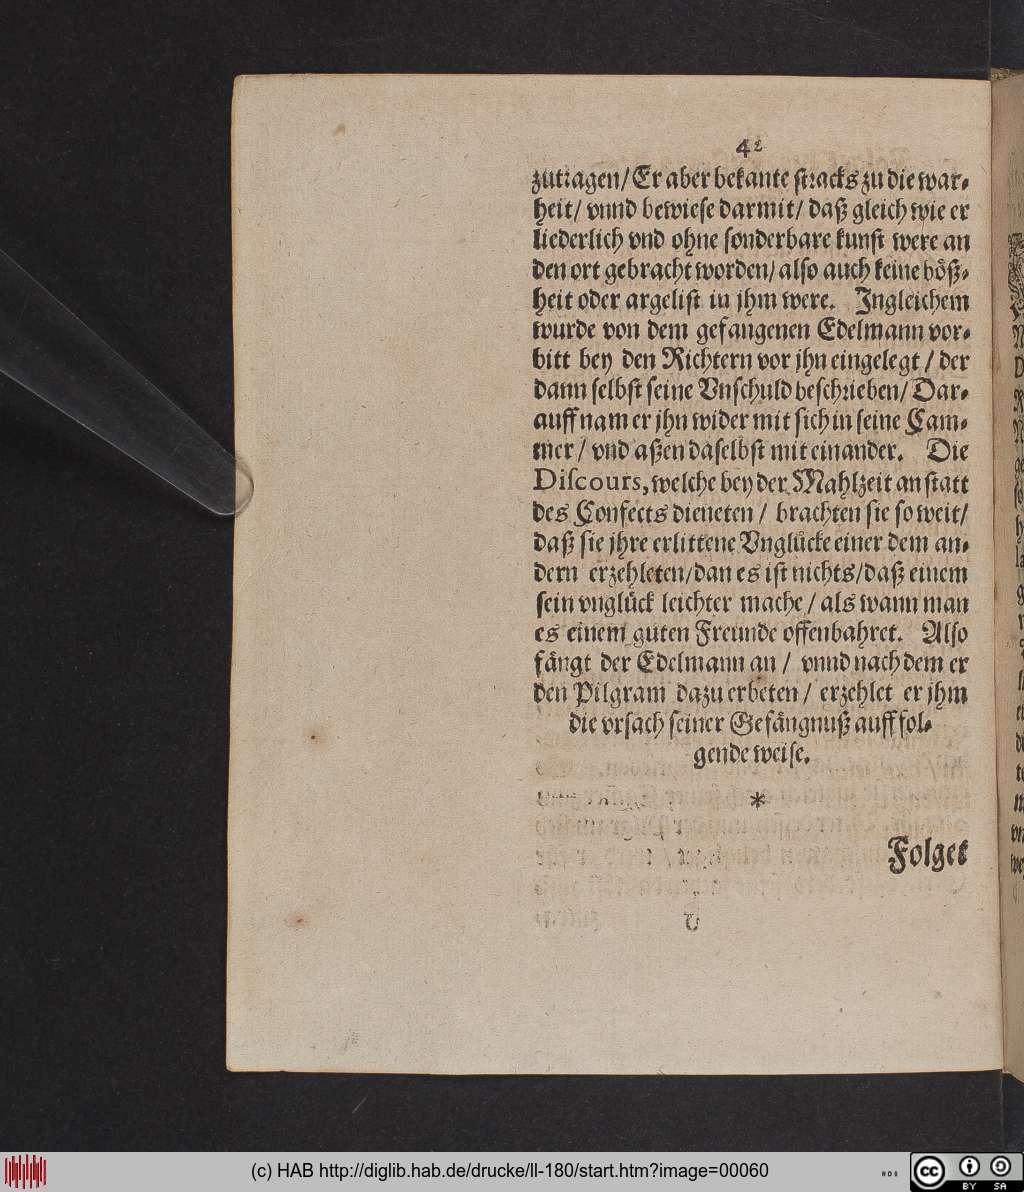 42
zutragen/ Er aber bekante stracks zu die war-
heit/ vnnd bewiese darmit/ daß gleich wie er
liederlich vnd ohne sonderbare kunst were an
den ort gebracht worden/ also auch keine böß-
heit oder argelist in jhm were. Ingleichem
wurde von dem gefangenen Edelmann vor-
bitt bey den Richtern vor jhn eingelegt / der
dann selbst seine Vnschuld beschrieben/ Dar-
auff nam er jhn wider mit sich in seine Cam-
mer / vnd aßen daselbst mit einander. Die
Discours, welche bey der Mahlzeit an statt
des Confects dieneten / brachten sie so weit/
daß sie jhre erlittene Vnglücke einer dem an-
dern erzehleten/ dan es ist nichts/ daß einem
sein vnglück leichter mache / als wann man
es einem guten Freunde offenbahret. Also
fängt der Edelmann an / vnnd nach dem er
den Pilgram dazu erbeten / erzehlet er jhm
die vrsach seiner Gefängnuß auff fol-
gende weise.
*
Folget
(c) HAB http://diglib.hab.de/drucke/ll-180/start.htm?image=00060
cc BY SA